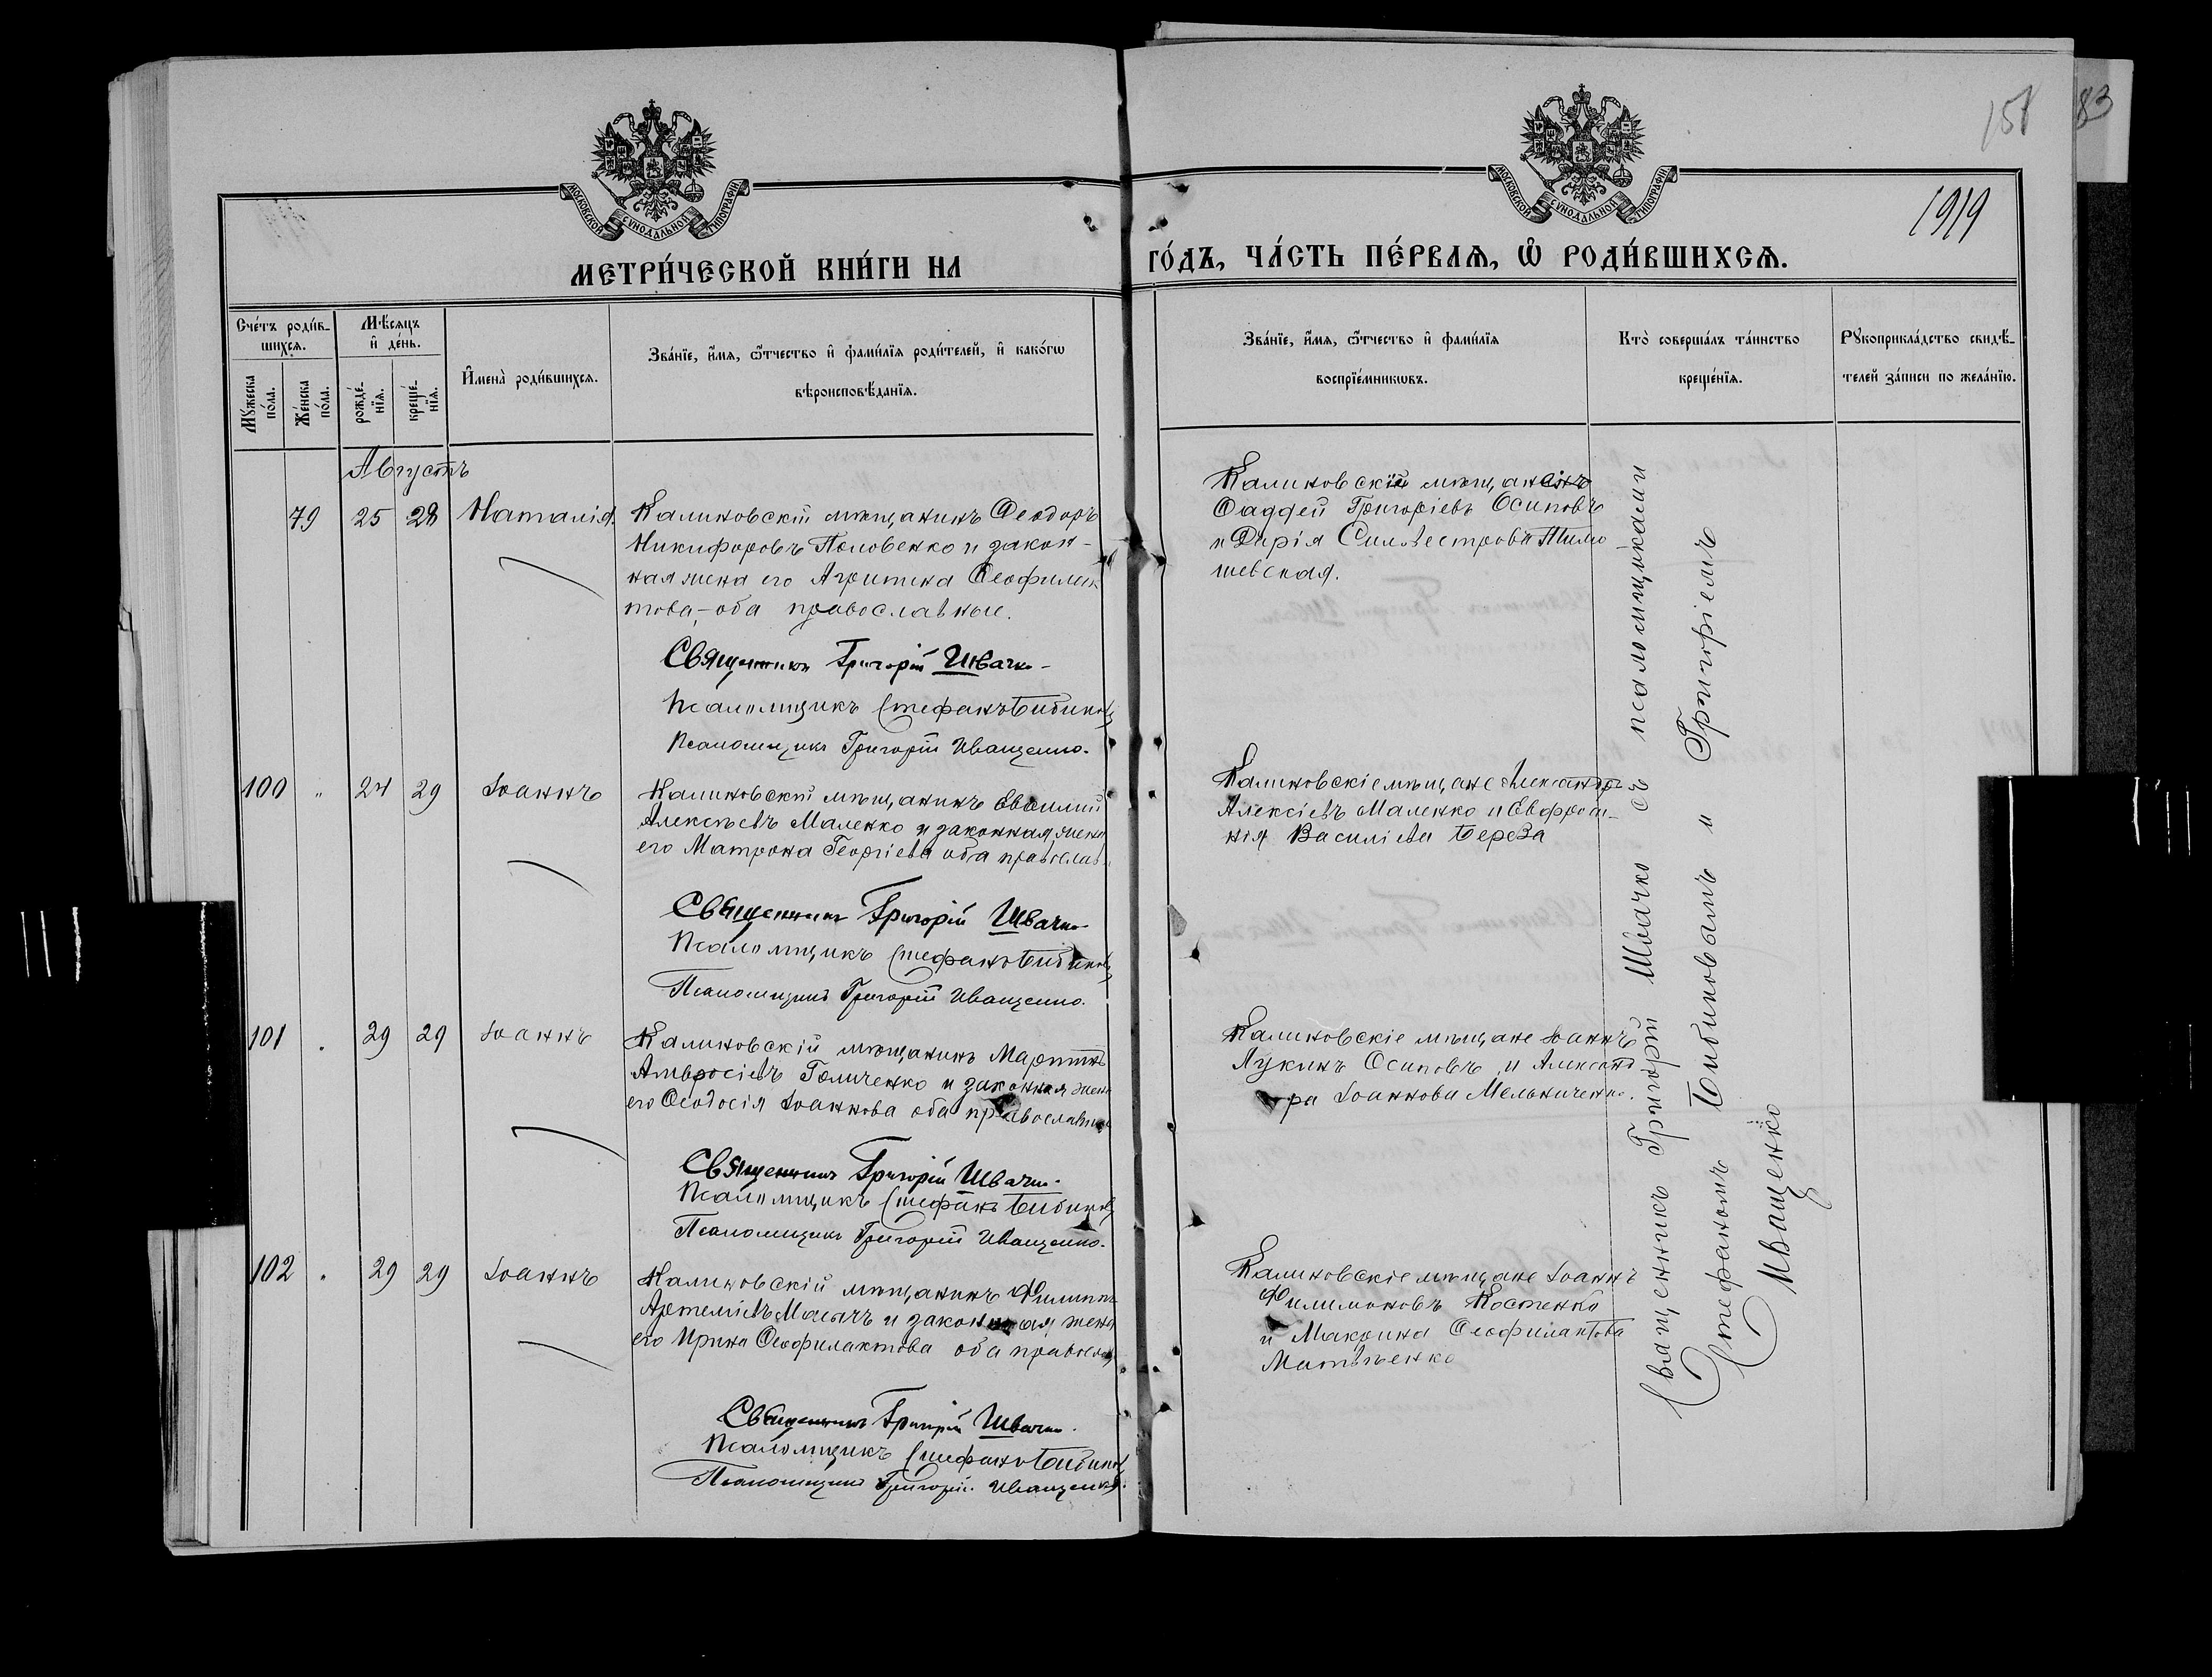 151
83
1919
МОСКОВСКОЙ СУНОДАЛЬНОЙ ТИПОГРАФІИ
МОСКОВСКОЙ СУНОДАЛЬНОЙ ТИПОГРАФІИ
МЕТРИ́ЧЕСКОЙ КНИ́ГИ НА
ГО́ДЪ, ЧА́СТЬ ПЕ́РВАѦ, Ѡ҆ РОДИ́ВШИХСѦ.
Сче́тъ роди́в-
шихсѧ.
Мꙋ́жеска по́ла.
Же́нска по́ла.
Мѣ́сѧцъ
и҆ де́нь.
рожде́-
нїѧ.
креще́-
нїѧ.
И҆мена̀ роди́вшихсѧ.
Зва́нїе, и҆́мѧ, ѻ҆́тчество и҆ фами́лїѧ роди́телей, и҆ како́гѡ
вѣроисповѣ́данїѧ.
Зва́нїе, и҆́мѧ, ѻ҆́тчество и҆ фами́лїѧ
воспрїе́мникѡвъ.
Кто̀ соверша́лъ та́инство
креще́нїѧ.
Рꙋкоприкла́дство свидѣ́-
телей за́писи по жела́нїю.
Августъ
79 25 28 Наталія
Калиновскій мѣщанинъ Ѳеодоръ
Никифоровъ Половенко и закон-
ная жена его Агрипина Ѳеофилак
това,- оба православные.
Священникъ Григорій Швачко
Псаломщикъ Стефанъ Бибиковъ
Псаломщикъ Григорій Иващенко.
Калиновскіе
Ѳаддей Григоріевъ Осиповъ
и Дарія Силвестрова
шевская.
100 " 24 29 Іоаннъ
Калиновскій мѣщанинъ
Алексѣевъ Маленко и законная жена
его Матрона Георгіева оба православ
Священникъ Григорій Швачко
Псаломщикъ Стефанъ Бибиковъ
Псаломщикъ Григорій Иващенко.
Калиновскіе мѣщане Александръ
Алексіевъ Маленко и Евфроси-
нія Василіева Береза
101 " 29 29 Іоаннъ
Калиновскій мѣщанинъ Мартинъ
Амвросіевъ Голиченко и законная жена
его Ѳеодосія Іоаннова оба православные
Священникъ Григорій Швачко
Псаломщикъ Стефанъ Бибиковъ
Псаломщикъ Григорій Иващенко.
Калиновскіе мѣщане Іоаннъ
Лукинъ Осиповъ и Александ-
ра Іоаннова Мельниченко.
102 " 29 29 Іоаннъ
Калиновскій мѣщанинъ Филиппъ
Артеміевъ и законная жена
его Ирина Ѳеофилактова оба православ
Священникъ Григорій Швачко
Псаломщикъ Стефанъ Бибиковъ
Псаломщикъ Григорій Иващенко.
Калиновскіе мѣщане Іоаннъ
Филимоновъ Костенко
и Макрина Ѳеофилактова
Матвѣенко
Священникъ Григорій Швачко съ псаломщиками
Стефаномъ Бибиковымъ и Григоріемъ
Иващенко